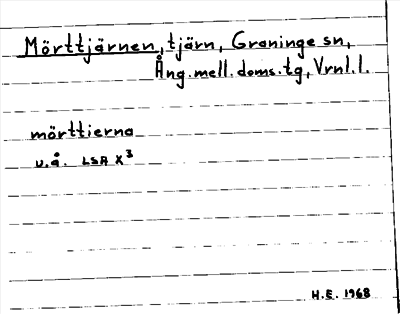 Mörttjärnen, tjärn, Graninge sn,
Ång.mell.doms.tg, Vrnl.l.
mörttierna
u.å. LSA X3
H.E. 1968